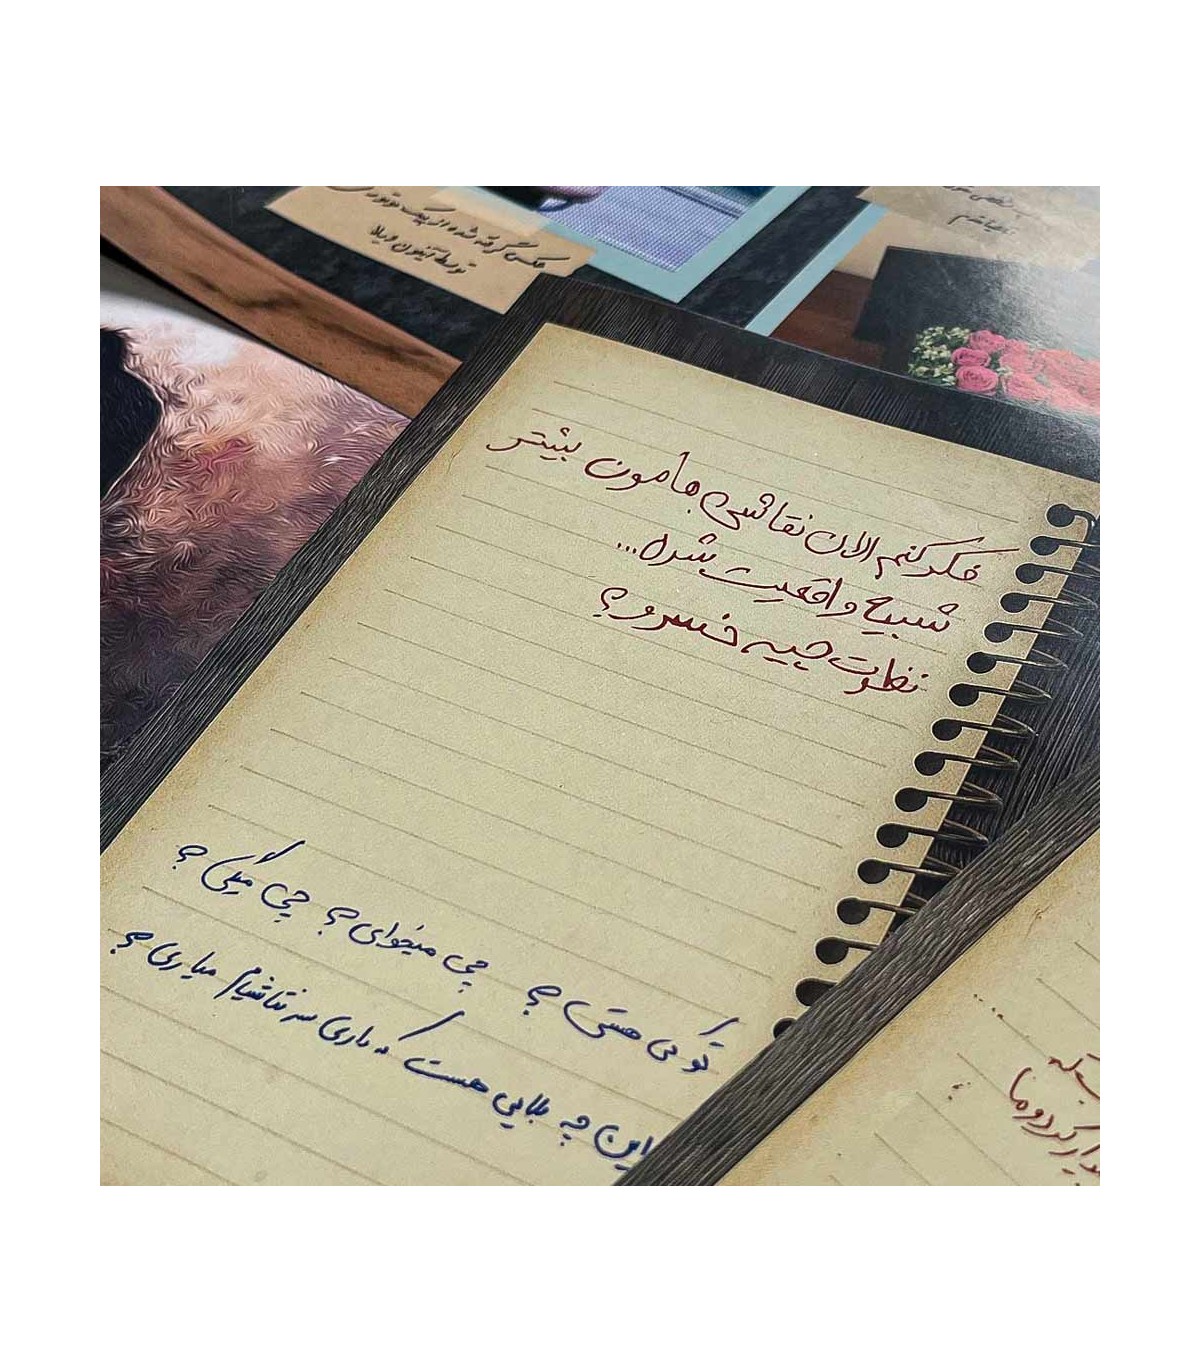 عکس گرفته شده از پیک موتوری
توسط آیفون ویلا
فکر کنم الان نقاشی‌هامون بیشتر
شبیه واقعیت شده...
نظرت چیه خسرو؟
تو کی هستی؟ چی میخوای؟ چی میگی؟
این چه بلایی هست که داری سر نقاشیام میاری؟